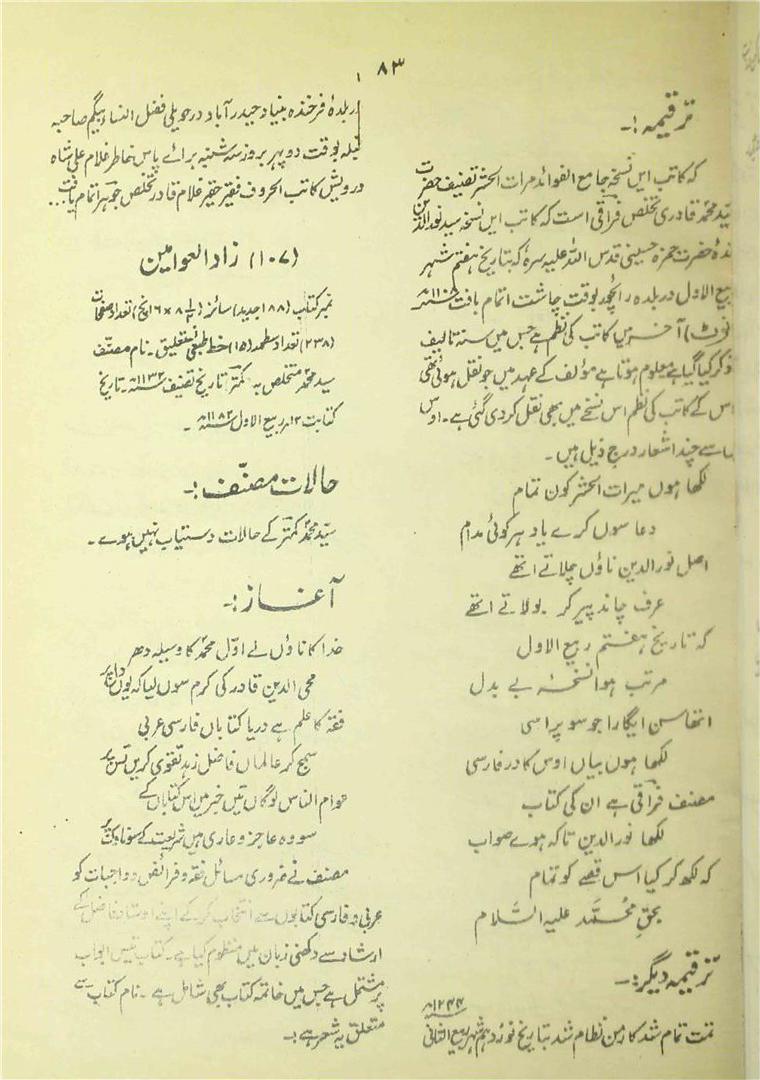 ۸۳
ترقیمہ :۔
کہ کاتب ایں نسخہ جامع الفوائد مرات الحشر تصنیف حضرت
سید محمد قادری تخلص فراقی است کہ کاتب ایں نسخہ سید نورالدین
حضرت حمزہ حسینی قدس اللہ علیہ سرہ کہ بتاریخ ہفتم شہر
ربیع الاول در بلدہ رائچور بوقت چاشت اتمام یافت
(نوٹ) آخر میں کاتب کی نظم ہے جس میں سنہ تالیف
ذکر کیا گیا ہے معلوم ہوتا ہے مؤلف کے عہد میں جو نقل ہوئی تھی
اس کے کاتب کی نظم اس نسخے میں بھی نقل کر دی گئی ہے۔ اوس
سے چند اشعار درج ذیل ہیں۔
لکھا ہوں میرات الحشر کون تمام
دعا سوں کرے یاد ہر کوئی مدام
اصل نورالدین ناؤں چلاتے اتھے
عرف چاند پیر کر بولاتے اتھے
کہ تاریخ ہفتم ربیع الاول
مرتب ہوا نسخۂ بے بدل
اتھا سن اگیارا جو سو پر اسی
لکھا ہوں بیاں اوس کا در فارسی
مصنف فراقی ہے ان کی کتاب
لکھا نورالدین تاکہ ہوے صواب
کہ لکھ کر کیا اس قصے کو تمام
بحق محمّد علیہ السّلام
ترقیمہ دیگر :۔
تمت تمام شد کار من نظام شد بتاریخ نوزدہم شہر ربیع الثانی ۱۲۴۴ھ
در بلدۂ فرخندہ بنیاد حیدرآباد در حویلی فضل النساء بیگم صاحبہ
قبلہ بوقت دوپہر بروز سہ شنبہ برائے پاس خاطر غلام علی شاہ
درویش کاتب الحروف فقیر حقیر غلام قادر تخلص جوہر اتمام یافت...
(۱۰۷) زاد العوامین
نمبر کتاب (۱۸۸ جدید) سائز (۸½ × ۶ انچ) تعداد صفحات
(۲۳۸) تعداد سطر (۱۵) خط طبعی نستعلیق۔ نام مصنف
سید محمد متخلص بہ کمتر تاریخ تصنیف ۱۱۳۲ھ۔ تاریخ
کتابت ۱۲؍ ربیع الاول ۱۱۸۲ھ۔
حالات مصنّف :۔
سیّد محمد کمتر کے حالات دستیاب نہیں ہوے۔
آغاز :۔
خدا کا ناؤں لے اوّل محمد کا وسیلہ دھر
محی الدین قادر کی کرم سوں لیا کہ یوں
فقہ کا علم ہے دریا کتاباں فارسی عربی
سمج کر عالماں فاضل زہد تقوی کریں
عوام الناس لوگاں تیں خبر میں اس کتاباں کے
سو وہ عاجز و عاری ہیں شریعت کے
مصنف نے ضروری مسائل فقہ و فرائض و واجبات کو
عربی و فارسی کتابوں سے انتخاب کر کے اپنے استاد فاضل کے
ارشاد سے دکھنی زبان میں منظوم کیا ہے۔ کتاب تیس ابواب
پر مشتمل ہے جس میں خاتمہ کتاب بھی شامل ہے۔ نام کتاب سے
متعلق یہ شعر ہے :۔